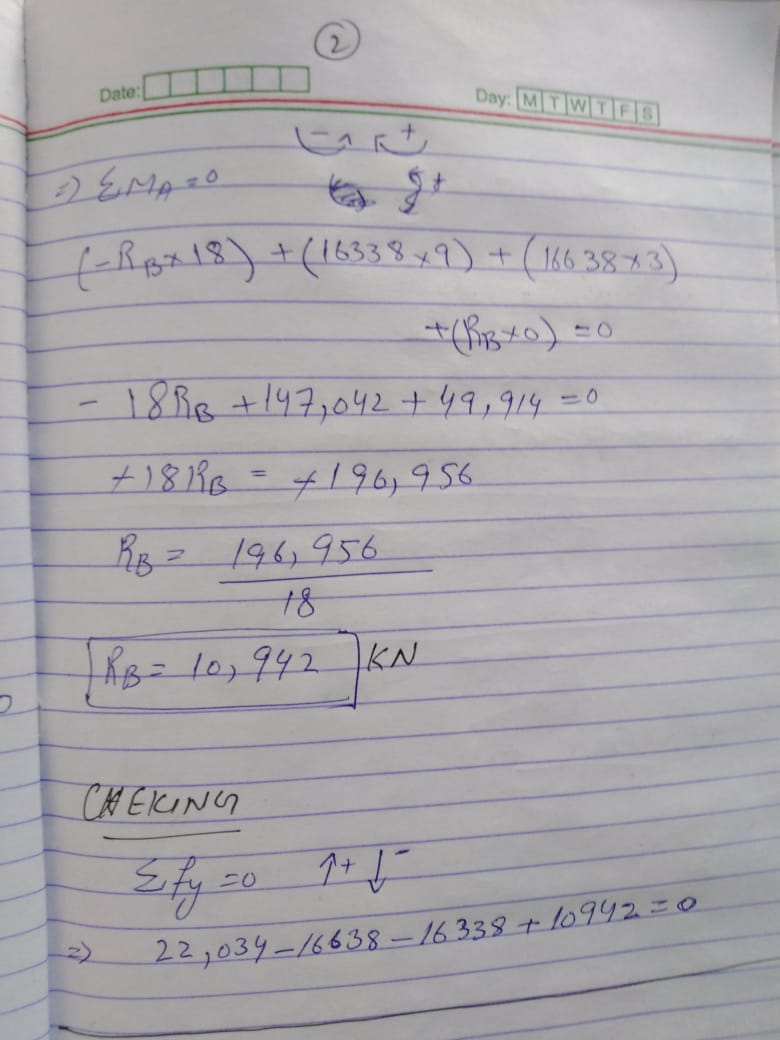 2
Date:
Day: M T W T F S
- +
=) ΣMA=0 +
(-RB×18) + (16338×9) + (16638×3)
+(RB×0) =0
- 18RB +147,042 + 49,914 =0
+18RB = +196,956
RB = 196,956
18
RB = 10,942 KN
CHEKING
Σfy =0 ↑+ ↓-
=) 22,034-16638-16338+10942=0